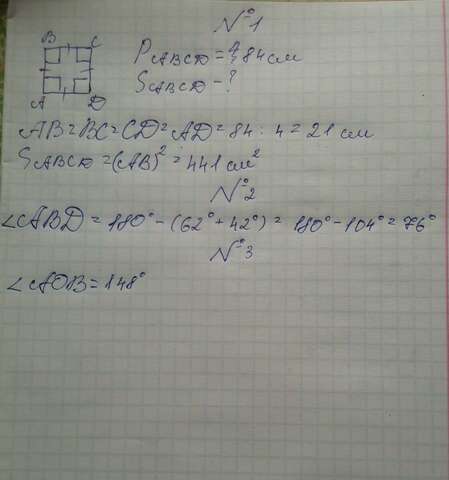 №1
B C
A D
P ABCD = 84 см
S ABCD - ?
AB=BC=CD=AD=84:4=21 см
S ABCD =(AB)²=441 см²
№2
∠ABD=180°-(62°+42°)=180°-104°=76°
№3
∠AOB=148°